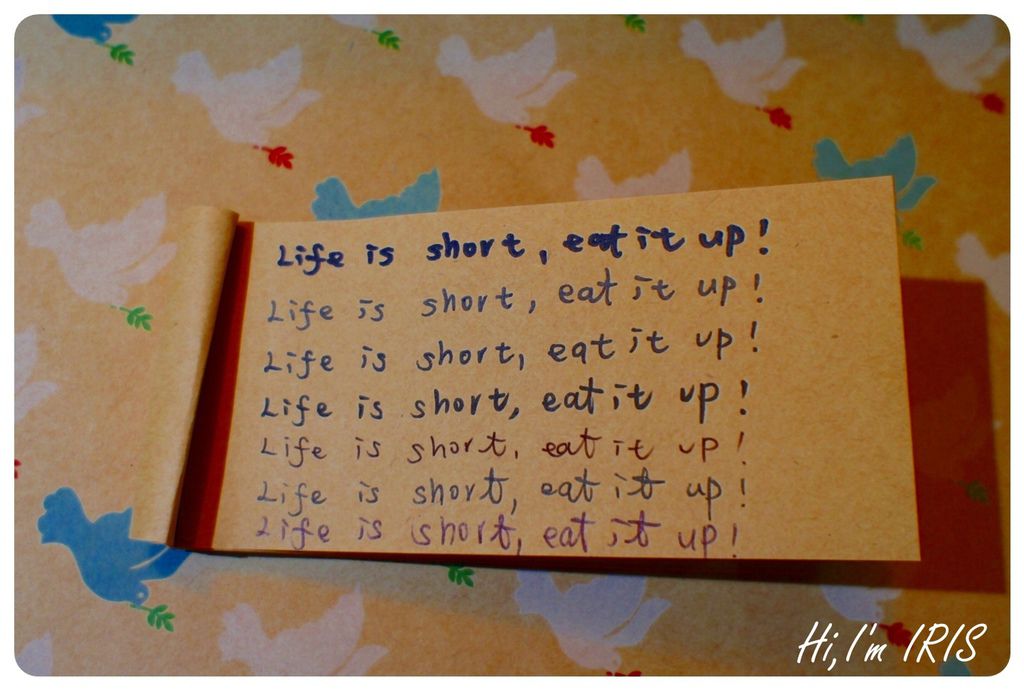 Life is short, eat it up!
Life is short, eat it up!
Life is short, eat it up!
Life is short, eat it up!
Life is short, eat it up!
Life is short, eat it up!
Life is short, eat it up!
Hi,I'm IRIS